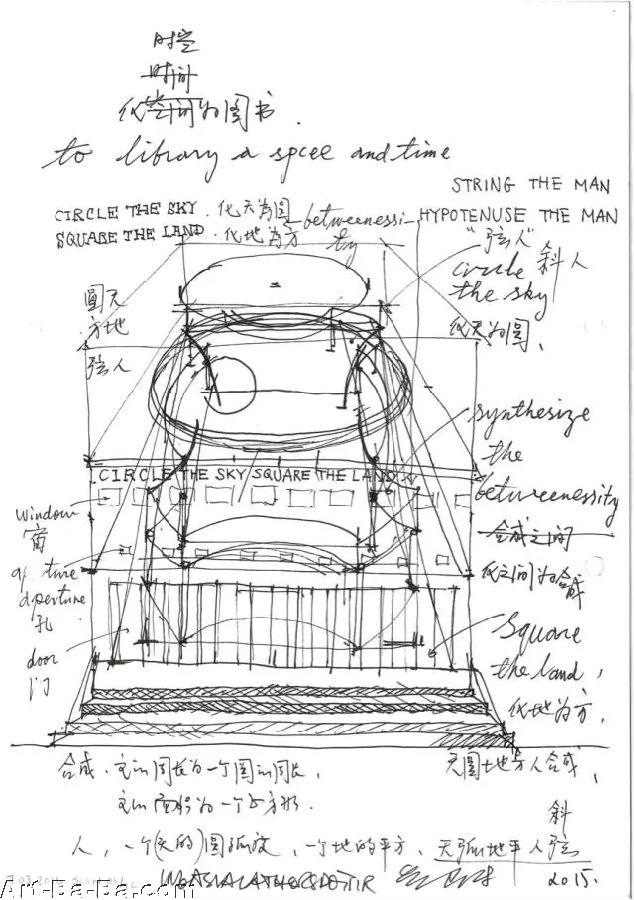 时空
时间
化空间为图书.
to library a spcee and time
STRING THE MAN
CIRCLE THE SKY. 化天为圆 betweenessi-
HYPOTENUSE THE MAN
SQUARE THE LAND. 化地为方 ty
"弦人" 斜人
circle
the sky
化天为圆、
圆天
方地
弦人
synthesize
the
betweenessity
CIRCLE THE SKY SQUARE THE LAND
window
窗
合成之间
化之间为合成
aperture
孔
door
门
Square
the land,
化地为方,
合成. 它的周长为一个圆的周长,
它的面积为一个正方形.
天圆地方人合成,
人, 一个(天的)圆弧度, 一个地的平方, 天弧地平人弦
斜
2015.
Art-Ba-Ba.com